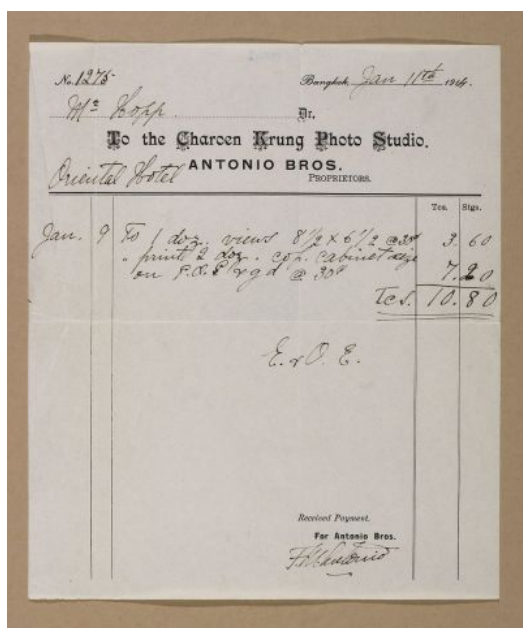 No. 1275- Bangkok, Jan 11th 1914.
Mr Hopp Dr.
To the Charoen Krung Photo Studio.
Oriental Hotel ANTONIO BROS.
PROPRIETORS.
Tcs. Stgs.
Jan. 9 To 1 doz. views 8 1/2 x 6 1/2 @ 30 3.60
" print 2 doz. cop. cabinet size
on P.O.P. gd @ 30 7.20
Tcs. 10.80
E. & O. E.
Received Payment.
For Antonio Bros.